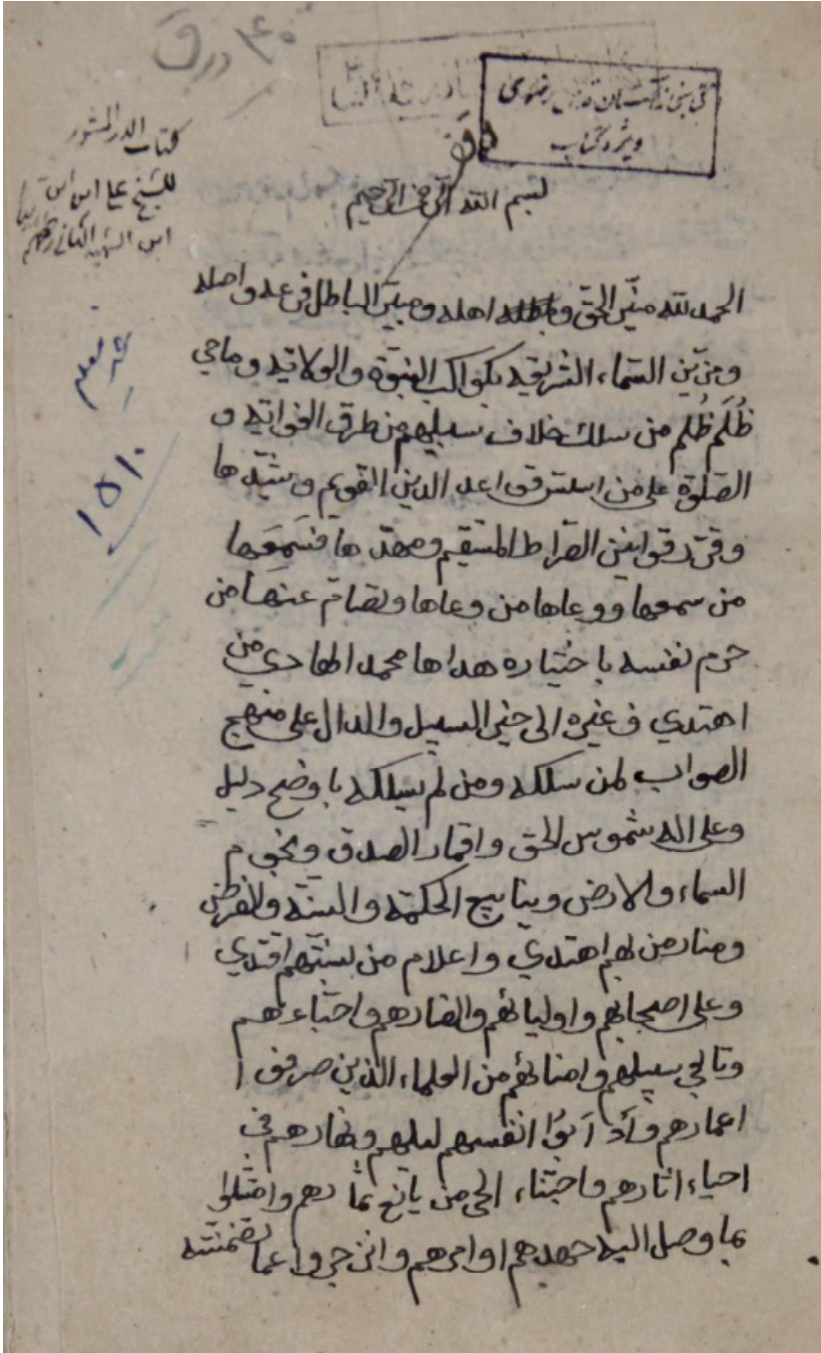 ٤٠ ورق
وقف
كتاب الدر المنثور
للشيخ علي ابن ابن
ابن الشهيد الثاني
بسم الله الرحمن الرحيم
الحمد لله مبين الحق واهله ومبين الباطل فرعه واصله
ومزين السماء الشريفة بكواكب النبوة والولاية وماحي
ظُلَم ظُلم من سلك خلاف سبيلهم من طرق الغواية و
الصلوة على من اسس قواعد الدين القويم وشيّدها
وقرر قوانين الصراط المستقيم ومهدها فسَمِعَها
من سمعها ووعاها من وعاها وتصامّ عنها من
حرم نفسه باختياره هداها محمد الهادي من
اهتدي وغيره الى خير السبيل والدال على منهج
الصواب لمن سلكه ومن لم يسلكه باوضح دليل
وعلى اله شموس الحق واقمار الصدق ونجوم
السماء والارض وينابيع الحكمة والسنة والفرض
ومنار من بهم اهتدي واعلام من بسنتهم اقتدي
وعلى اصحابهم واوليائهم وانصارهم واحبّاءهم
وتابعي سبيلهم وامنائهم من العلماء الذين صرفوا
اعمارهم وأدأبوُا انفسهم ليلهم ونهارهم في
احياء اثارهم واجتناء الجني من يانع ثمارهم وامتثلوا
بما وصل اليه جهدهم اوامرهم وانزجروا عما تضمنته
١٥١٠